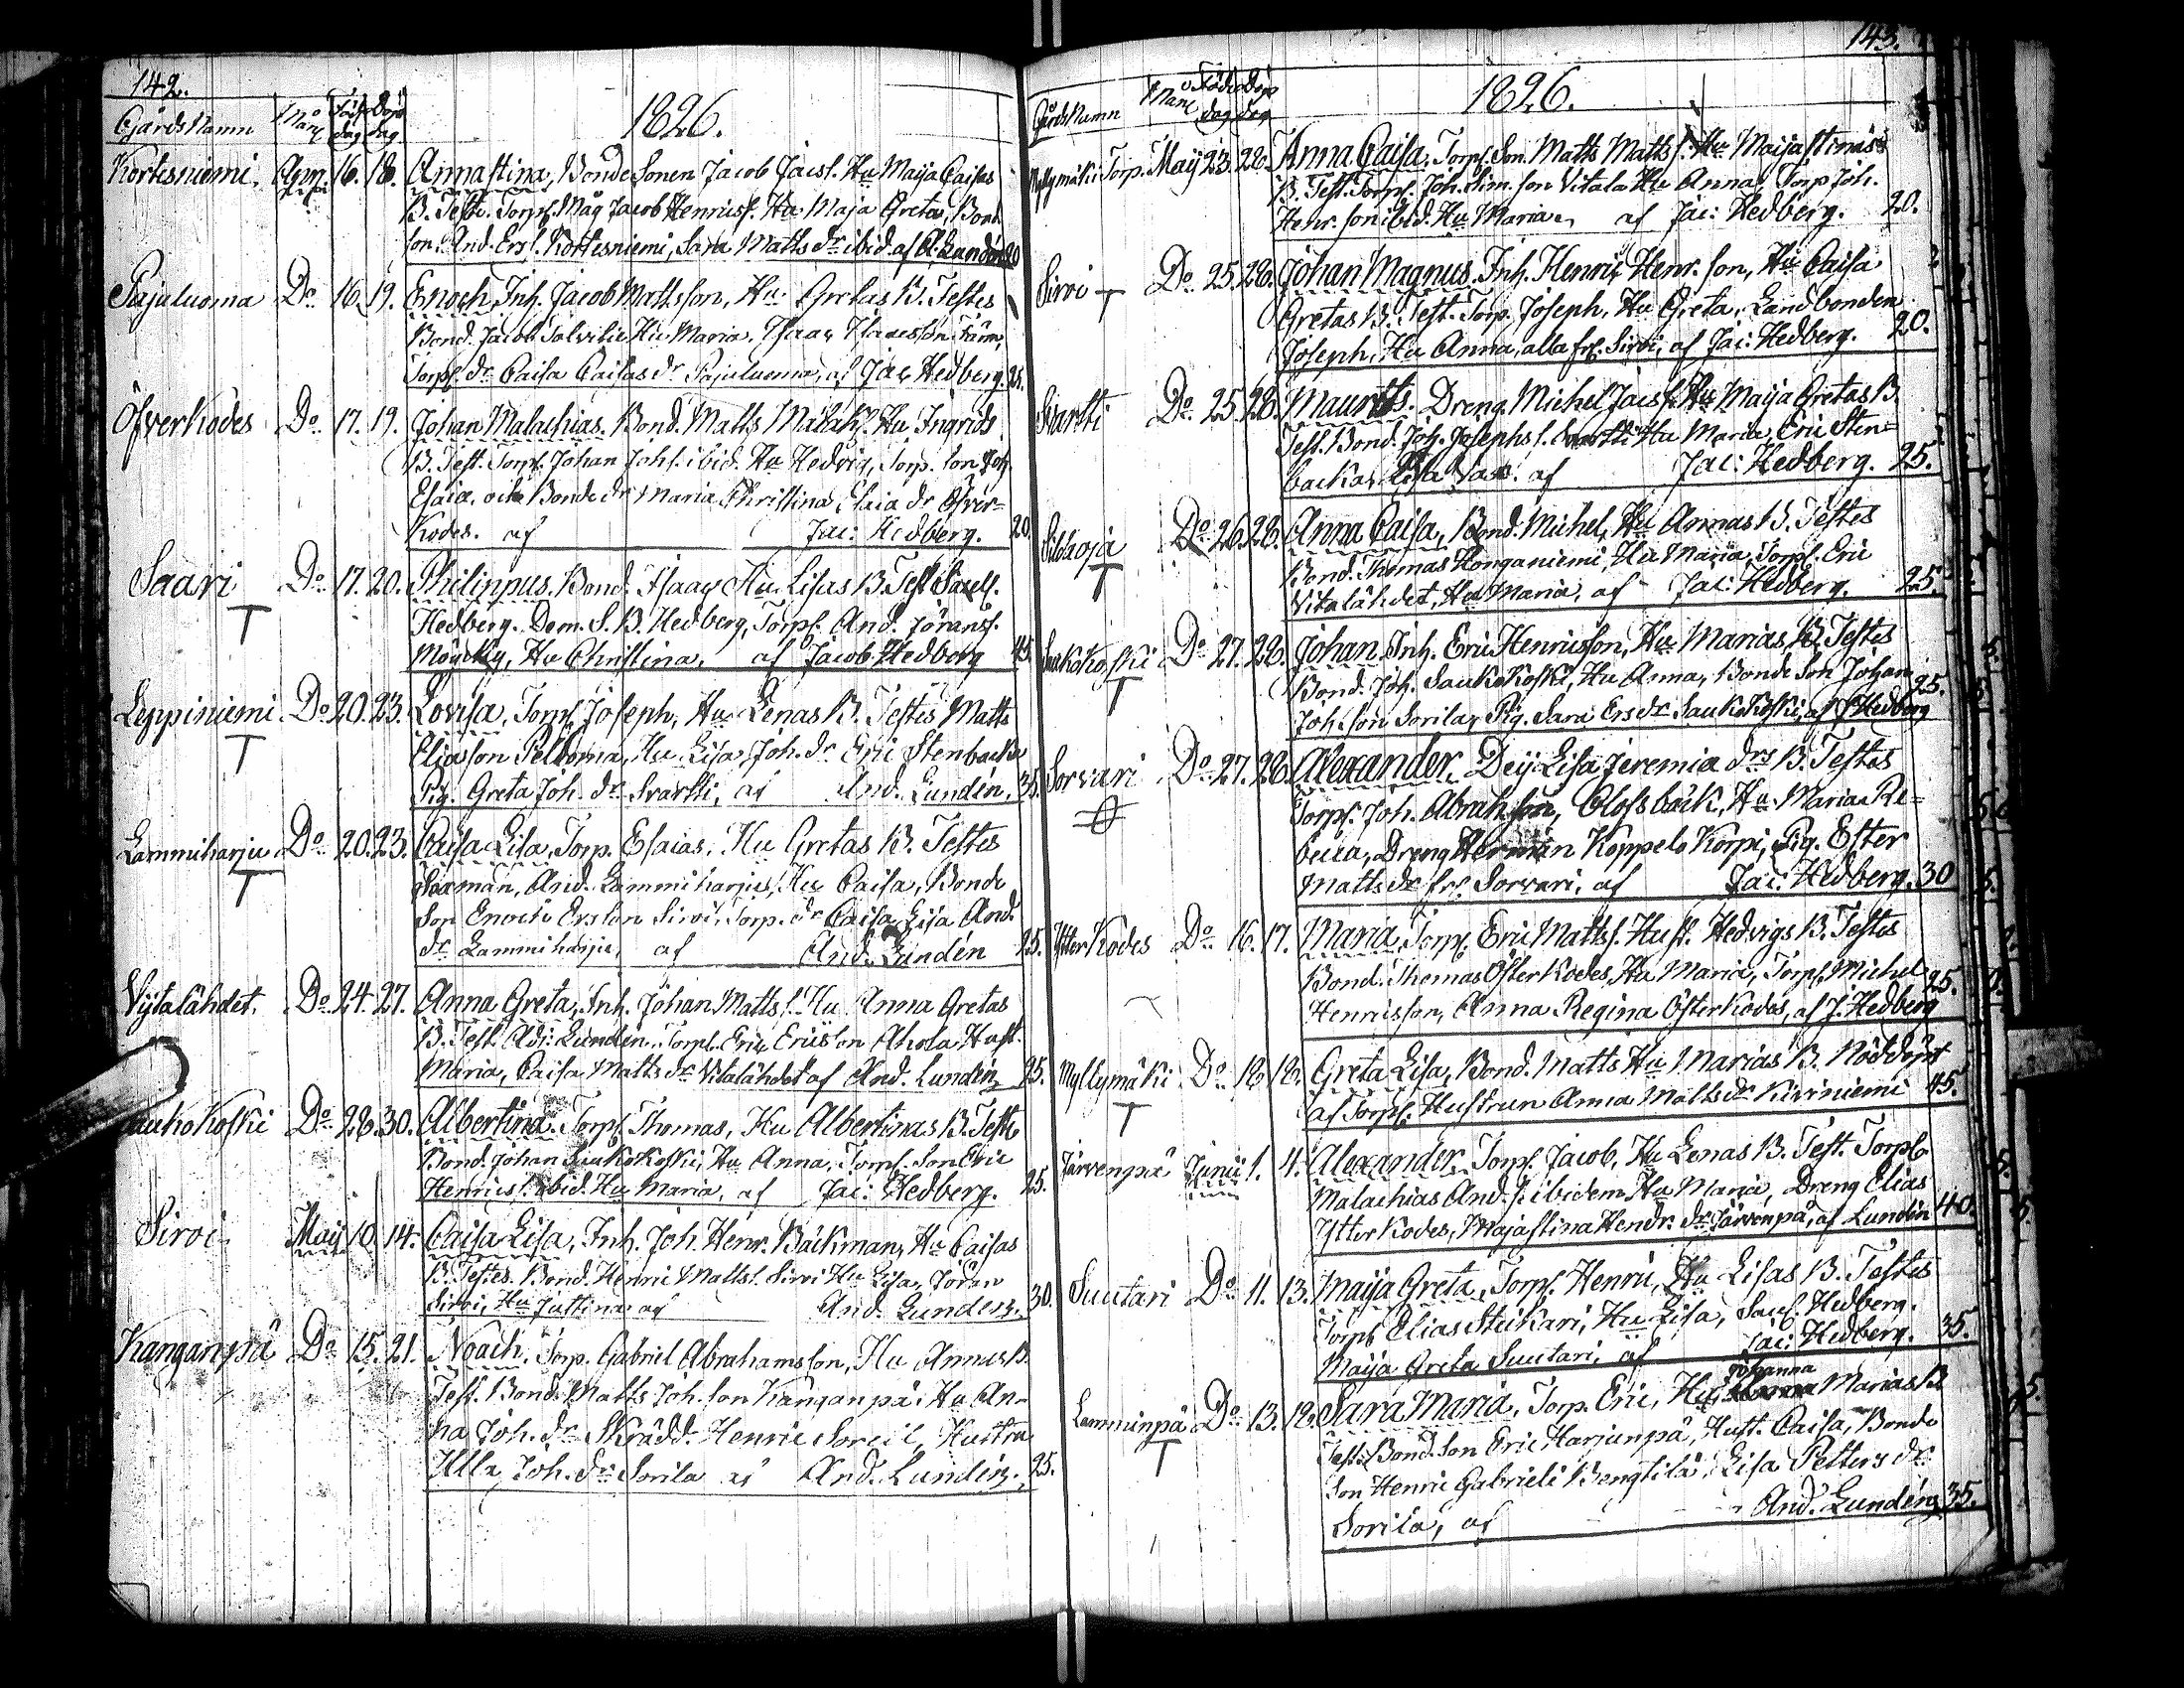 142.
Gårds Namn Mån Föd dag Döp dag 1826.
Kortesniemi. Apr. 16. 18. Annastina, Bonde Sonen Jacob Jacs. Hu Maija Caisas
B. Teste. Torp. Måg Jacob Henrics. Hu Maja Greta, Bond.
son. And. Ers. Kortesniemi, Sara Matts dr ibid. af A. Lundén 20
Pajuluoma Do 16. 19. Enoch, Inh. Jacob Mattsson, Hu Gretas B. Testes
Bond. Jacob Hu Maria, Isaac Isacsson
Torp. dr Caisa Caisas dr Pajuluoma, af Jac. Hedberg. 25.
Öfverkodes Do 17. 19. Johan Malachias. Bond. Matts Malak. Hu Ingrids
B. Test. Torp. Johan Johs. ibid. Hu Hedvig, Torp. son Joh.
Esaiæ, och Bonde dr Maria Christina Esaiæ dr Öfver-
Kodes. af Jac: Hedberg. 20.
Saari T Do 17. 20. Philippus. Bond. Isaac Hu Lisas B. Test.
Hedberg. Dem. S. B. Hedberg, Torp. And. Jörans.
Hu Christina, af Jacob Hedberg 45.
Leppiniemi T Do 20. 23. Lovisa, Torp. Joseph, Hu Lenas B. Testes Matts
Eliasson Peltoma, Hu Lisa Joh. dr Eric Stenbacka
Pig. Greta Joh. dr Svartti, af And. Lundén. 35.
Lammiharju T Do 20. 23. Caisa Lisa, Torp. Esaias. Hu Gretas B. Testes
And. Lammiharju, Hu Caisa, Bonde
Son Enoch Ersson Sirvi, Torp. dr Caisa Lisa And.
dr Lammiharju, af And. Lundén 25.
Vijtalähdet. Do 24. 27. Anna Greta, Inh. Johan Matts. Hu Anna Gretas
B. Test. Adj: Lundén. Torp. Eric Ericsson Ahola Hust.
Maria, Caisa Matts dr Vitalähdet af And. Lundén 25.
aukokoski Do 28. 30. Albertina. Torp. Thomas, Hu Albertinas B. Teste
Bond. Johan Saukokoski, Hu Anna, Torp. Son Eric
Henrics. ibid. Hu Maria, af Jac: Hedberg. 25.
Sirvi. Maij 10. 14. Caisa Lisa, Inh. Joh. Henr. Bäckman, Hu Caisas
B. Testes. Bond. Henric Matts. Sirvi Hu Lisa, Jöran
Sirvi, Hu Justina af And. Lundén. 30.
Kanganpä Do 15. 21. Noach. Torp. Gabriel Abrahamsson, Hu Annas B.
Test. Bond. Matts Joh. son Kanganpä. Hu An-
na Joh. dr Skrädd. Henric Hustru
Ulla Joh. dr Sorila af And. Lundén. 25.
143.
Gårds Namn Mån Föd dag Döp dag 1826.
Myllymäki Torp. Maij 23. 28. Anna Caisa, Torp. Son. Matts Matts. Hu Maijastinas
B. Test. Torp. Joh. Sim. son Vitala Hu Anna, Torp Joh.
Henr. son ibid. Hu Maria. af Jac: Hedberg. 20.
Sirvi T Do 25. 28. Johan Magnus. Inh. Henric Henr. son, Hu Caisa
Gretas B. Test. Torp. Joseph, Hu Greta, Landbonden
Joseph, Hu Anna, alla fr. Sirvi, af Jac: Hedberg. 20.
Svartti Do 25. 28. Maurits. Dreng. Michel Jacs. Hu Maija Gretas B.
Test. Bond. Joh. Josephs. Svartti Hu Maria, Eric Sten-
backa, Lisa af Jac: Hedberg. 25.
T Do 26. 28. Anna Caisa, Bond. Michel, Hu Annas B. Testes
Bond. Thomas Honganiemi, Hu Maria, Torp. Eric
Vitalähdet, Hu Maria, af Jac: Hedberg. 25.
Saukokoski T Do 27. 28. Johan. Inh. Eric Henricsson, Hu Marias B. Testes
Bond. Joh. Saukokoski, Hu Anna, Bonde Son Johan
Joh. son Sorila, Pig. Sara Ers dr Saukokoski, af J. Hedberg 25.
Sorvari Do 27. 28. Alexander. Dej Lisa Jeremiæ drs B. Testes
Torp. Joh. Abrahson, Olofsbäck, Hu Maria Re-
becca, Dreng Herman Koppelo Korpi, Pig. Ester
Matts dr fr. Sorvari, af Jac: Hedberg. 30
Ytter Kodes Do 16. 17. Maria, Torp. Eric Matts. Hust. Hedvigs B. Testes
Bond. Thomas Österkodes, Hu Maria, Torp. Michel
Henricsson, Anna Regina Österkodes, af J. Hedberg 25.
Myllymäki T Do 18. 18. Greta Lisa, Bond. Matts Hu Marias B. Nöddöpt
af Torp. Hustrun Anna Matts dr Kiviniemi 45.
Järvenpä Junii 1. 4. Alexander. Torp. Jacob, Hu Lenas B. Test. Torp.
Malachias And. s. ibidem Hu Maria, Dreng Elias
Ytterkodes, Majastina Hendr. dr Järvenpä, af Lundén 40.
Suutari Do 11. 13. Maija Greta, Torp. Henric, Hu Lisas B. Testes
Torp. Elias Hu Lisa, Hedberg.
Maija Greta Suutari, af Jac: Hedberg. 35.
Lamminpä T Do 13. 18. Sara Maria, Torp. Eric, Hu Johanna Marias B
Test. Bond. Son Eric Harjunpä, Hust. Caisa, Bonde
Son Henric Gabriels Bengtilä. Lisa Petters dr
Sorila, af And. Lundén 35.